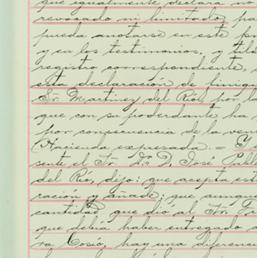 que igualmente declara no
revocado ni limitado, pa
pueda anotarse en este
y en los testimonios, y
registro correspondiente,
esta declaración de
Sr. Martinez del Rio, por la
que con su poderdante ha
por consecuencia de la ven
Hacienda expresada. =
sente el Sr. Dr. D. José Pabl
del Rio, dijo: que acepta est
ración y añade: que aunque
cantidad que dio al Sr.
que debia haber entregado a
ra Cosio, hay una diferenci